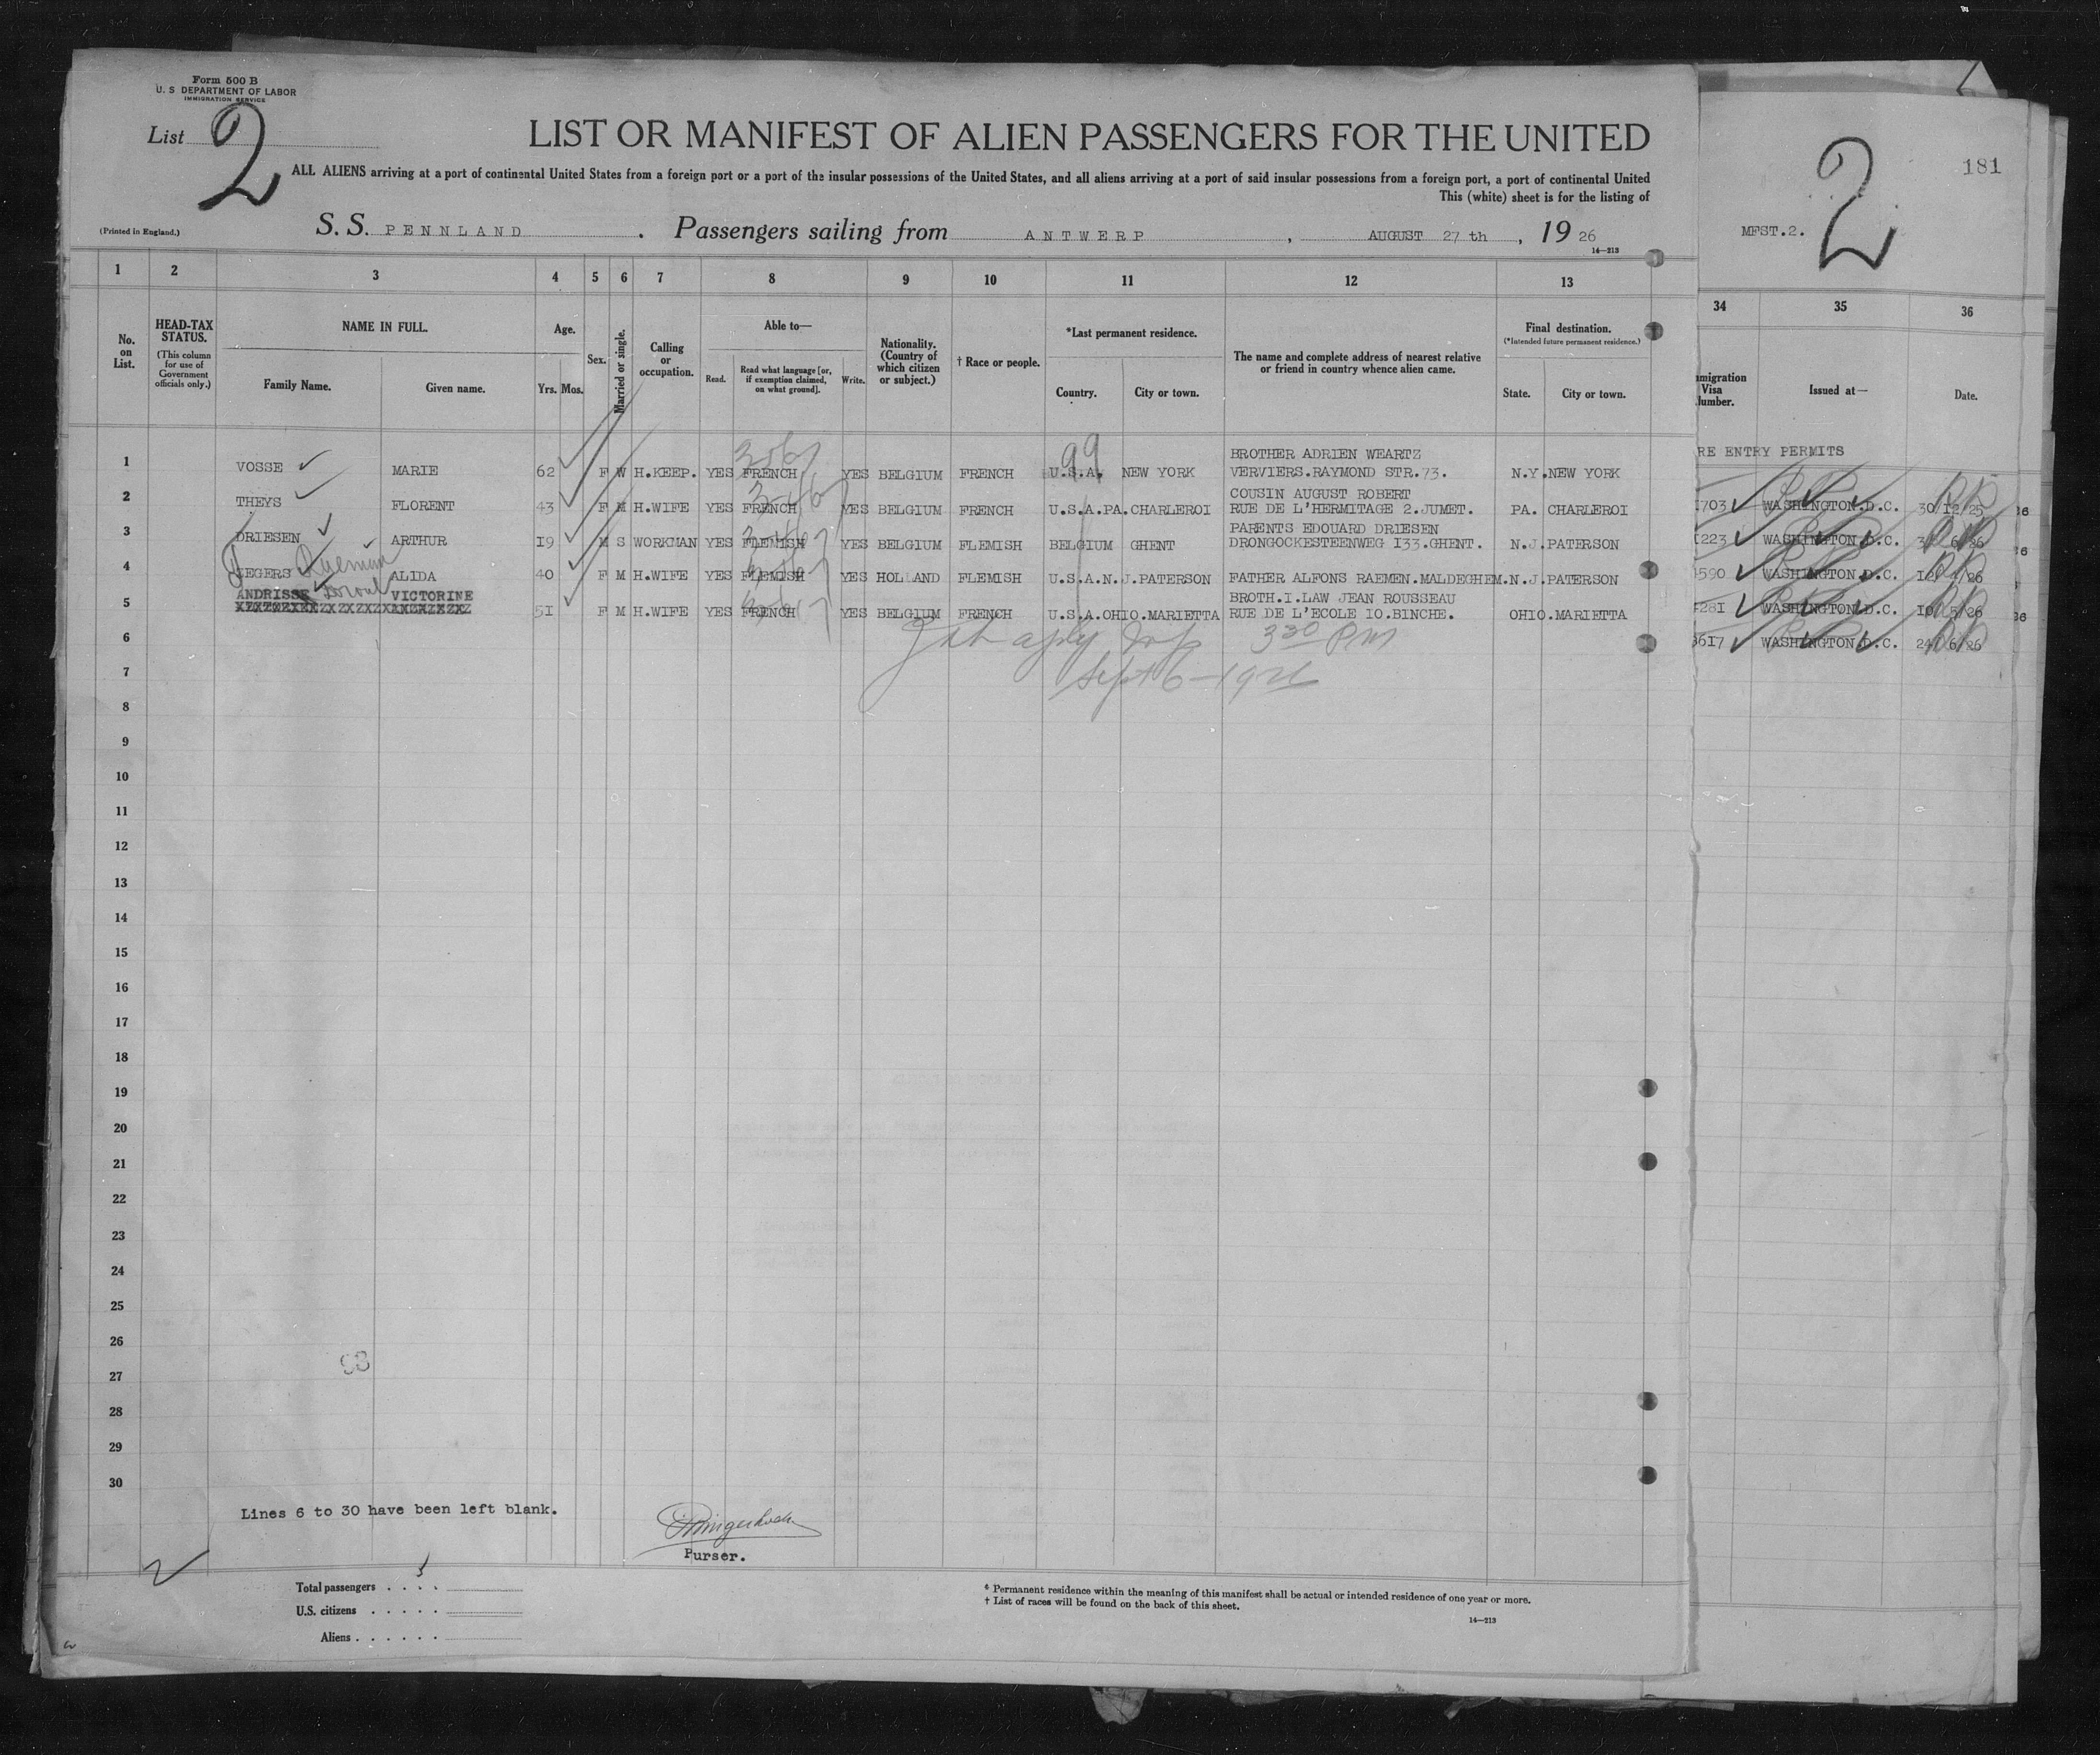 Form 500 B
U. S DEPARTMENT OF LABOR
IMMIGRATION SERVICE
List 2
LIST OR MANIFEST OF ALIEN PASSENGERS FOR THE UNITED
ALL ALIENS arriving at a port of continental United States from a foreign port or a port of the insular possessions of the United States, and all aliens arriving at a port of said insular possessions from a foreign port, a port of continental United
This (white) sheet is for the listing of
(Printed in England.)
S. S. PENNLAND . Passengers sailing from ANTWERP , AUGUST 27 th , 19 26
14—213
1 2 3 4 5 6 7 8 9 10 11 12 13
No. on List.
HEAD-TAX STATUS.
(This column for use of Government officials only.)
NAME IN FULL.
Family Name. Given name.
Age.
Yrs. Mos.
Sex.
Married or single.
Calling or occupation.
Able to—
Read. Read what language [or, if exemption claimed, on what ground]. Write.
Nationality. (Country of which citizen or subject.)
† Race or people.
*Last permanent residence.
Country. City or town.
The name and complete address of nearest relative or friend in country whence alien came.
Final destination.
(*Intended future permanent residence.)
State. City or town.
99
BROTHER ADRIEN WEARTZ
1 VOSSE MARIE 62 F W H.KEEP. YES FRENCH YES BELGIUM FRENCH U.S.A. NEW YORK VERVIERS.RAYMOND STR.73. N.Y. NEW YORK
COUSIN AUGUST ROBERT
2 THEYS FLORENT 43 F M H.WIFE YES FRENCH YES BELGIUM FRENCH U.S.A.PA.CHARLEROI RUE DE L'HERMITAGE 2.JUMET. PA. CHARLEROI
PARENTS EDOUARD DRIESEN
3 DRIESEN ARTHUR I9 M S WORKMAN YES FLEMISH YES BELGIUM FLEMISH BELGIUM GHENT DRONGOCKESTEENWEG I33.GHENT. N.J.PATERSON
4 JEGERS ALIDA 40 F M H.WIFE YES FLEMISH YES HOLLAND FLEMISH U.S.A.N.J.PATERSON FATHER ALFONS RAEMEN.MALDEGHEM.N.J.PATERSON
ANDRISSE VICTORINE BROTH.I.LAW JEAN ROUSSEAU
5 5I F M H.WIFE YES FRENCH YES BELGIUM FRENCH U.S.A.OHIO.MARIETTA RUE DE L'ECOLE IO.BINCHE. OHIO.MARIETTA
6 330 PM
7 Sept 6-1926
8
9
10
11
12
13
14
15
16
17
18
19
20
21
22
23
24
25
26
27
28
29
30
Lines 6 to 30 have been left blank.
Purser.
Total passengers . . . . 5
U.S. citizens . . . . .
Aliens . . . . . .
* Permanent residence within the meaning of this manifest shall be actual or intended residence of one year or more.
† List of races will be found on the back of this sheet.
14—213
2
181
MFST.2.
34 35 36
migration Visa umber.
Issued at—
Date.
RE ENTRY PERMITS
703 WASHINGTON.D.C. 30/12/25
223 WASHINGTON.D.C.
590 WASHINGTON.D.C.
281 WASHINGTON.D.C. 10/5/26
3617 WASHINGTON.D.C. 24/6/26